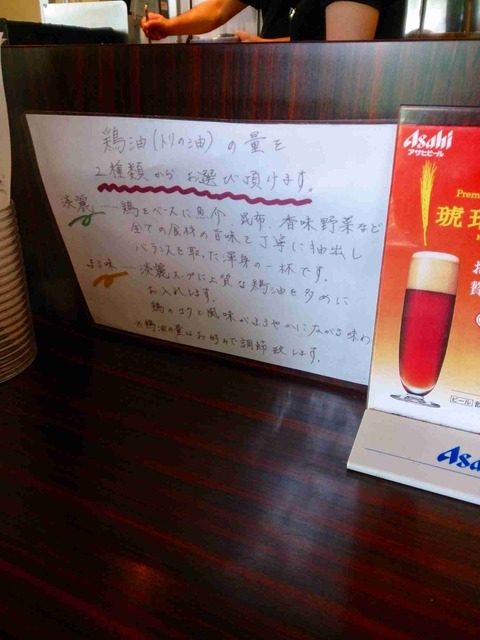 鶏油(トリの油)の量を
2種類からお選び頂けます。
淡麗 --- 鶏をベースに魚介 昆布 香味野菜など
全ての食材の旨味を丁寧に抽出し
バランスを取った渾身の一杯です。
淡麗スープに上質な鶏油を多めに
お入れします。
鶏のコクと風味がまろやかに
※鶏油の量はお好みで調節致します。
Asahi
アサヒビール
Premi
琥
ビール
Asa